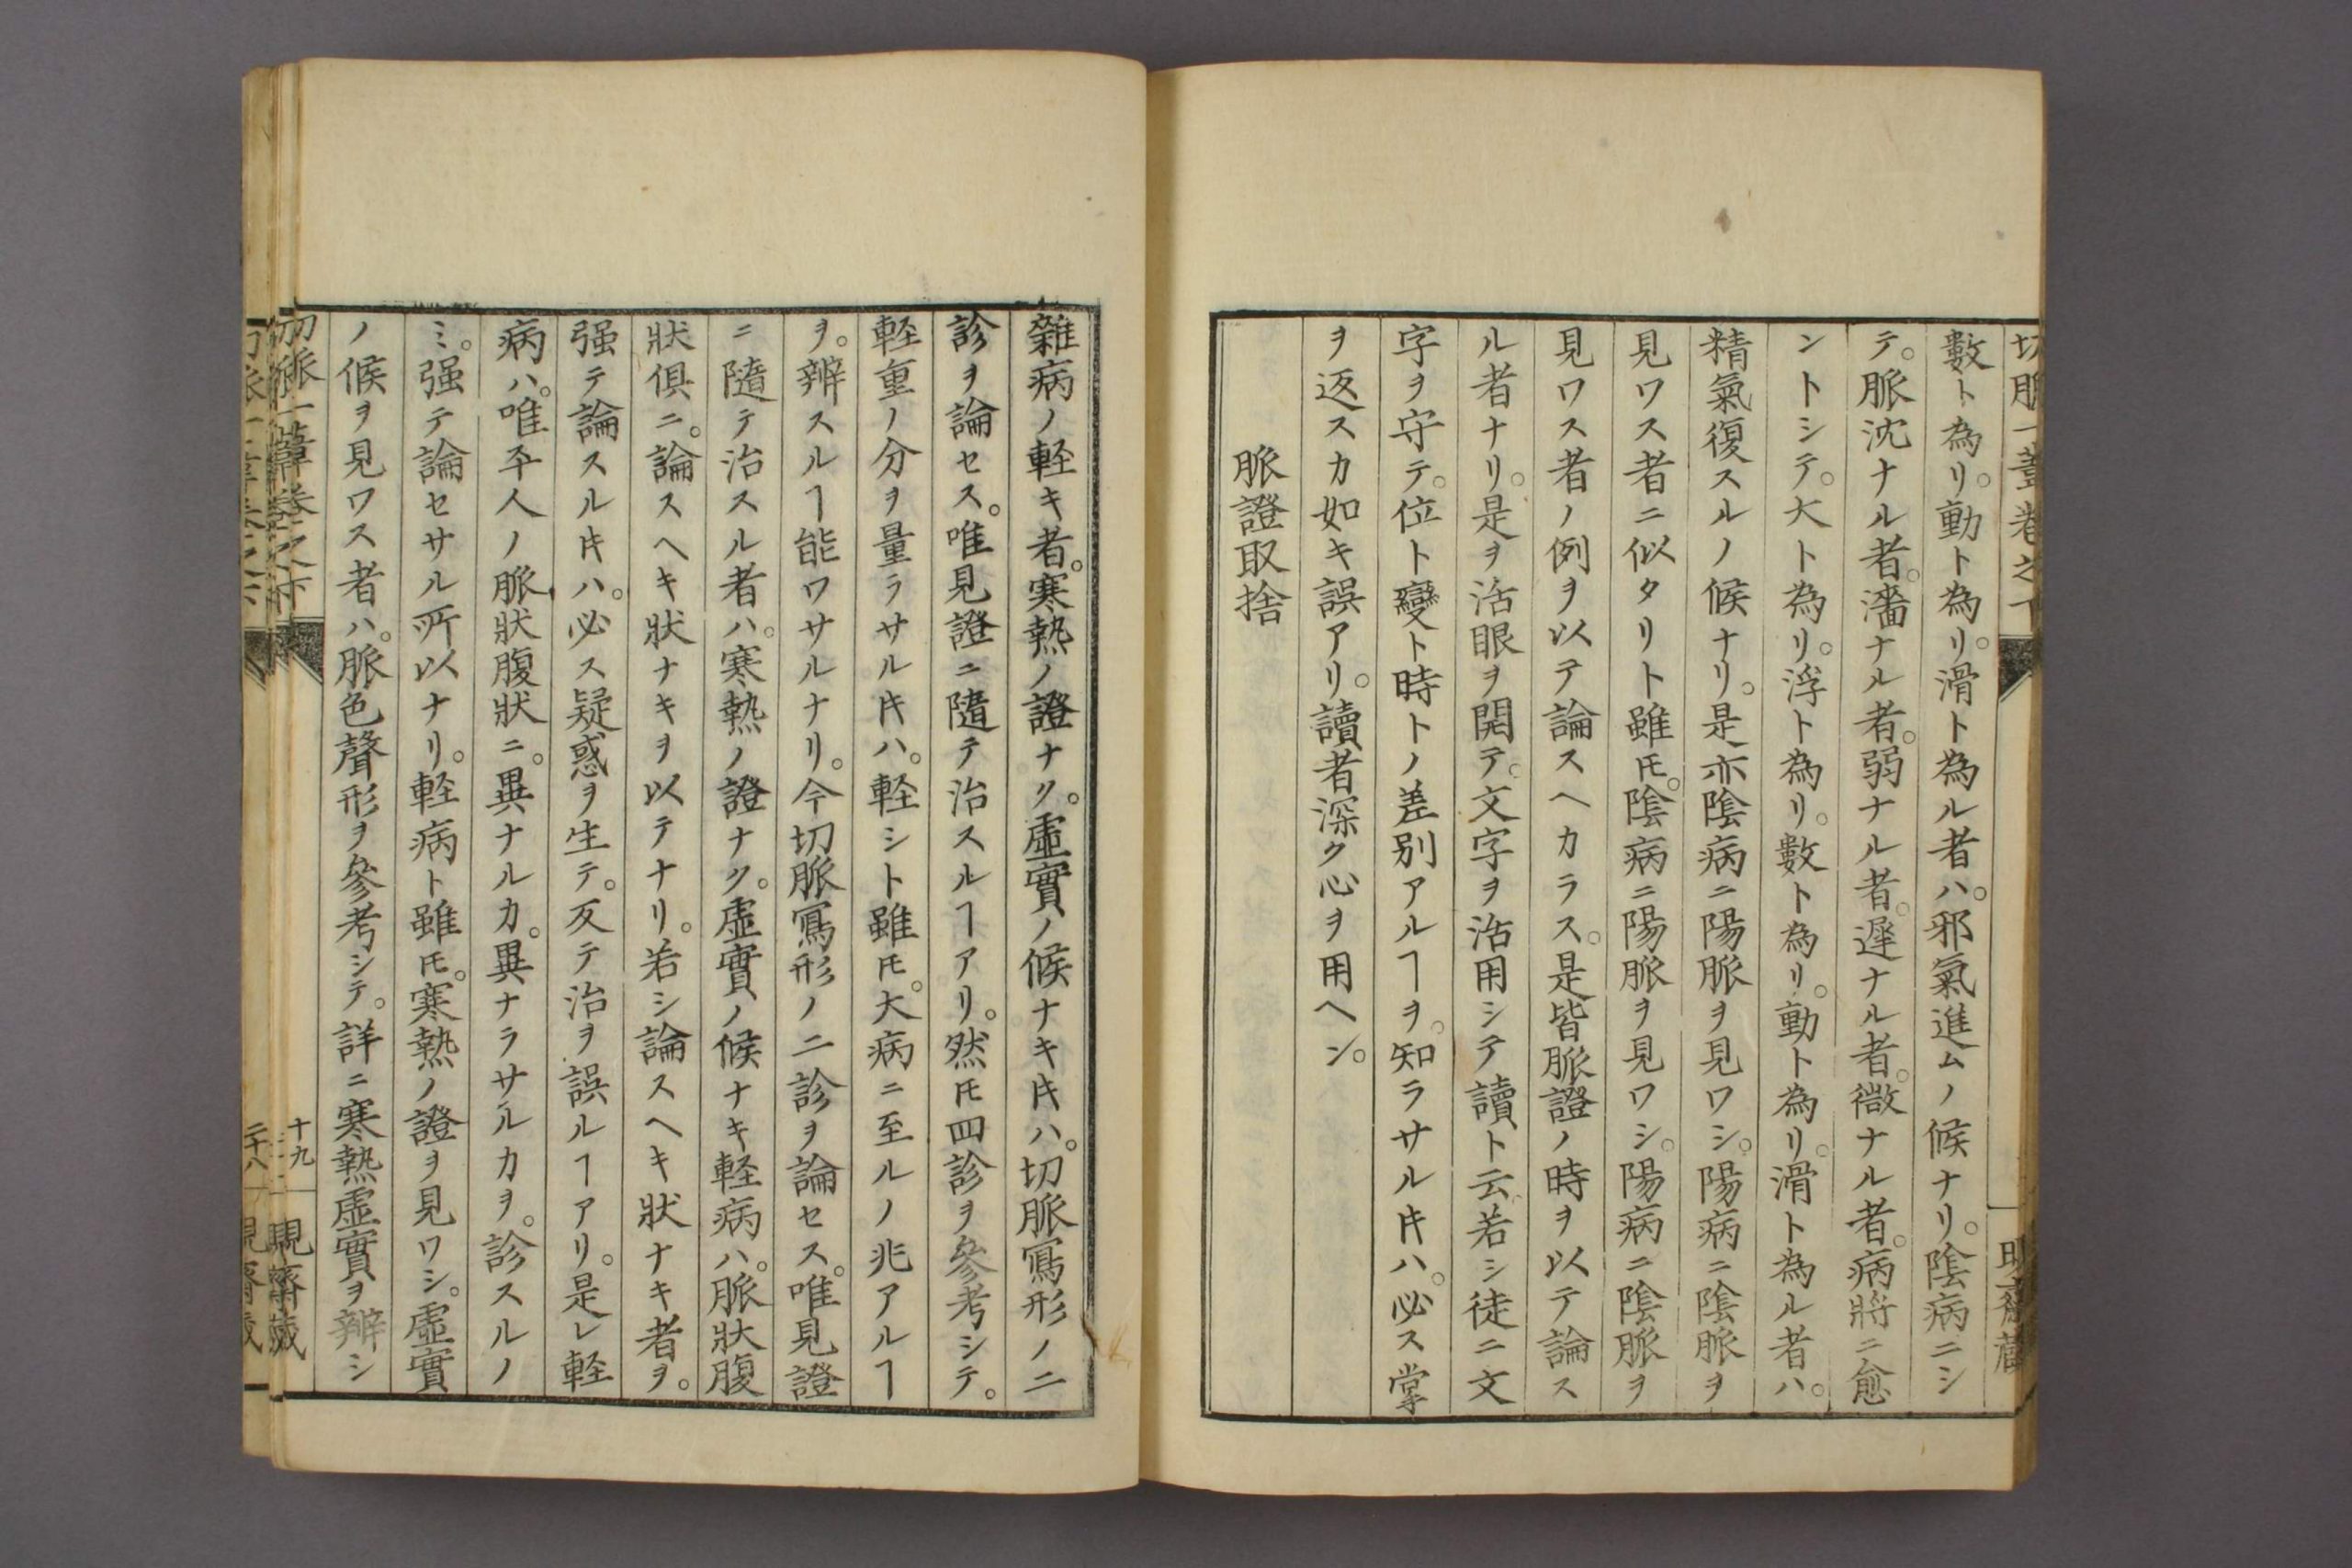 數ト為リ。動ト為リ。滑ト為ル者ハ。邪氣進ムノ候ナリ。陰病ニシ
テ。脈沈ナル者。濇ナル者。弱ナル者。遲ナル者。微ナル者。病將ニ愈
ントシテ。大ト為リ。浮ト為リ。數ト為リ。動ト為リ。滑ト為ル者ハ。
精氣復スルノ候ナリ。是亦陰病ニ陽脈ヲ見ワシ。陽病ニ陰脈ヲ
見ワス者ニ似タリト雖𪜈。陰病ニ陽脈ヲ見ワシ。陽病ニ陰脈ヲ
見ワス者ノ例ヲ以テ論スヘカラス。是皆脈證ノ時ヲ以テ論ス
ル者ナリ。是ヲ活眼ヲ開テ。文字ヲ活用シテ讀ト云。若シ徒ニ文
字ヲ守テ。位ト變ト時トノ差別アルヿヲ。知ラサル𪜀ハ。必ス掌
ヲ返スカ如キ誤アリ。讀者深ク心ヲ用ヘシ。
脈證取捨
雜病ノ軽キ者。寒熱ノ證ナク。虛實ノ候ナキ𪜀ハ。切脈寫形ノ二
診ヲ論セス。唯見證ニ隨テ治スルヿアリ。然𪜈四診ヲ參考シテ。
軽重ノ分ヲ量ラサル𪜀ハ。軽シト雖𪜈。大病ニ至ルノ兆アルヿ
ヲ。辨スルヿ能ワサルナリ。今切脈寫形ノ二診ヲ論セス。唯見證
ニ隨テ治スル者ハ。寒熱ノ證ナク。虛實ノ候ナキ軽病ハ。脈狀腹
狀俱ニ。論スヘキ狀ナキヲ以テナリ。若シ論スヘキ狀ナキ者ヲ。
强テ論スル𪜀ハ。必ス疑惑ヲ生テ。反テ治ヲ誤ルヿアリ。是レ軽
病ハ。唯平人ノ脈狀腹狀ニ。異ナルカ。異ナラサルカヲ。診スルノ
ミ。强テ論セサル所以ナリ。軽病ト雖𪜈。寒熱ノ證ヲ見ワシ。虛實
ノ候ヲ見ワス者ハ。脈色聲形ヲ參考シテ。詳ニ寒熱虛實ヲ辨シ
切脈一葦卷之下
十九
二十八